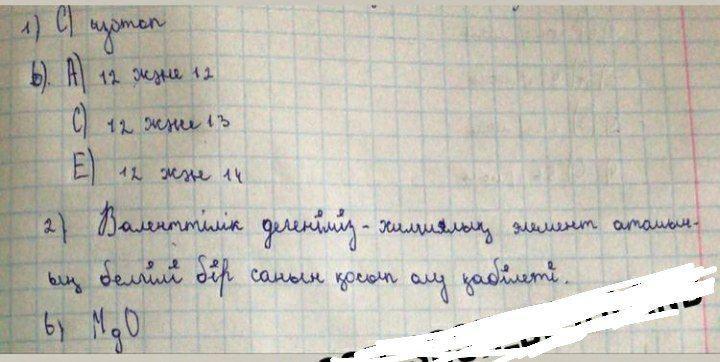 1) C) изотоп
b). A) 12 және 12
C) 12 және 13
E) 12 және 14
2) Валенттілік дегеніміз - химиялық элемент атомын-
ың белгілі бір санын қосып алу қабілеті.
b) MgO